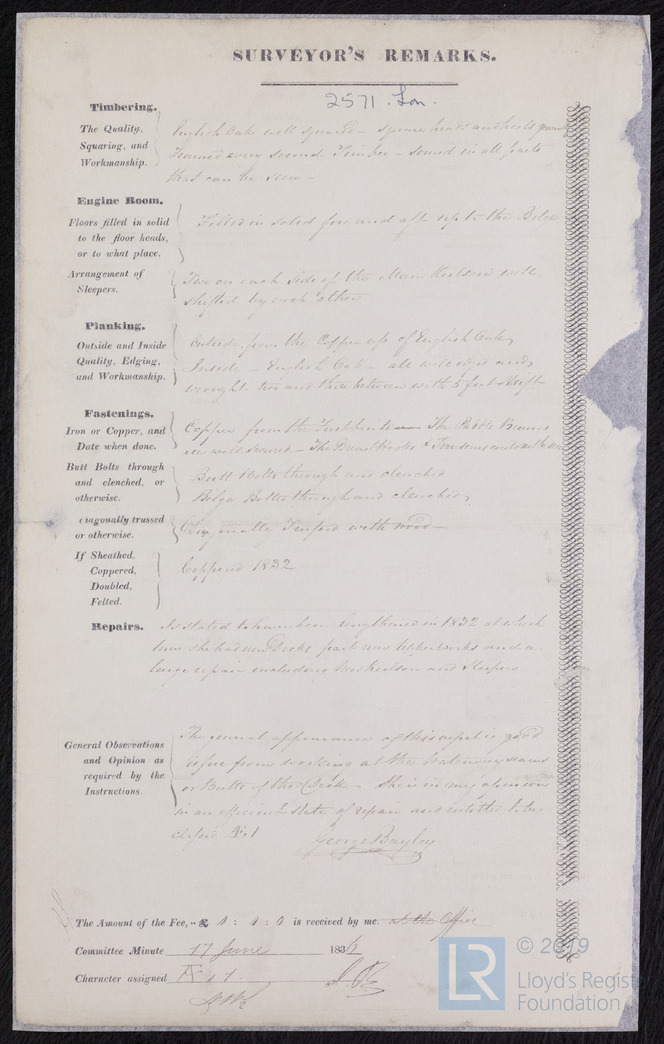 SURVEYOR'S REMARKS.
2571. Lon.
Timbering.
The Quality,
Squaring, and
Workmanship.
English Oak well squared – square heads and heels
Framed every second Timber – sound in all parts
that can be seen –
Engine Room.
Floors filled in solid
to the floor heads,
or to what place.
Filled in solid fore and aft up to the
Arrangement of
Sleepers.
Two on each side of the Main Keelson well
shifted by each other
Planking.
Outside and Inside
Quality, Edging,
and Workmanship.
Outside, from the Copper up of English Oak,
Inside – English Oak – all well edged and
wrought two and three between with 5 feet Shift
Fastenings.
Iron or Copper, and
Date when done.
Copper from the The Paddle Beams
are well secured – The &
Butt Bolts through
and clenched, or
otherwise.
Butt Bolts through and clenched
Bilge Bolts through and clenched,
iagonally trussed
or otherwise.
Diagonally with wood –
If Sheathed,
Coppered,
Doubled,
Felted.
Coppered 1832
Repairs.
Is stated to have been lengthened in 1832 at which
time she had new Decks part new upperworks and a
large repair including New Keelson and Sleepers
General Observations
and Opinion as
required by the
Instructions.
The general appearance of this vessel is good
is free from working at the Waterway seams
or Butts of the Deck – She is in my opinion
in an efficient state of repair and entitled to be
classed Æ 1
George Bayley
The Amount of the Fee, £ 4 : 4 : 0 is received by me. at the Office
Committee Minute 17 June 1836
Character assigned Æ 1
© 2019
LR
Lloyd's Register
Foundation